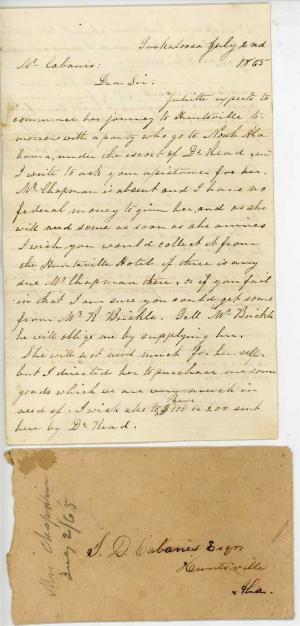 Tuskaloosa July 2nd
1865
Mr Cabanis:
Dear Sir:
Juliette expects to
commence her journey to Huntsville to-
morrow with a party who go to North Ala
bama, under the escort of Dr Head, and
I write to ask your assistance for her.
Mr Chapman is absent and I have no
federal money to give her, and as she
will need some as soon as she arrives
I wish you would collect it from
the Huntsville Hotel if there is any
due Mr Chapman there, or if you fail
in that I am sure you could get some
from Mr R Brickle. Tell Mr Brickle
he will oblige me by supplying her.
She will not need much for her self,
but I directed her to purchase me some
goods which we are very much in
need of. I wish also to have
$100 or 200 sent
here by Dr Head.
Mrs Chapman
July 2/65
S. D. Cabanis Esqr
Huntsville
Ala.